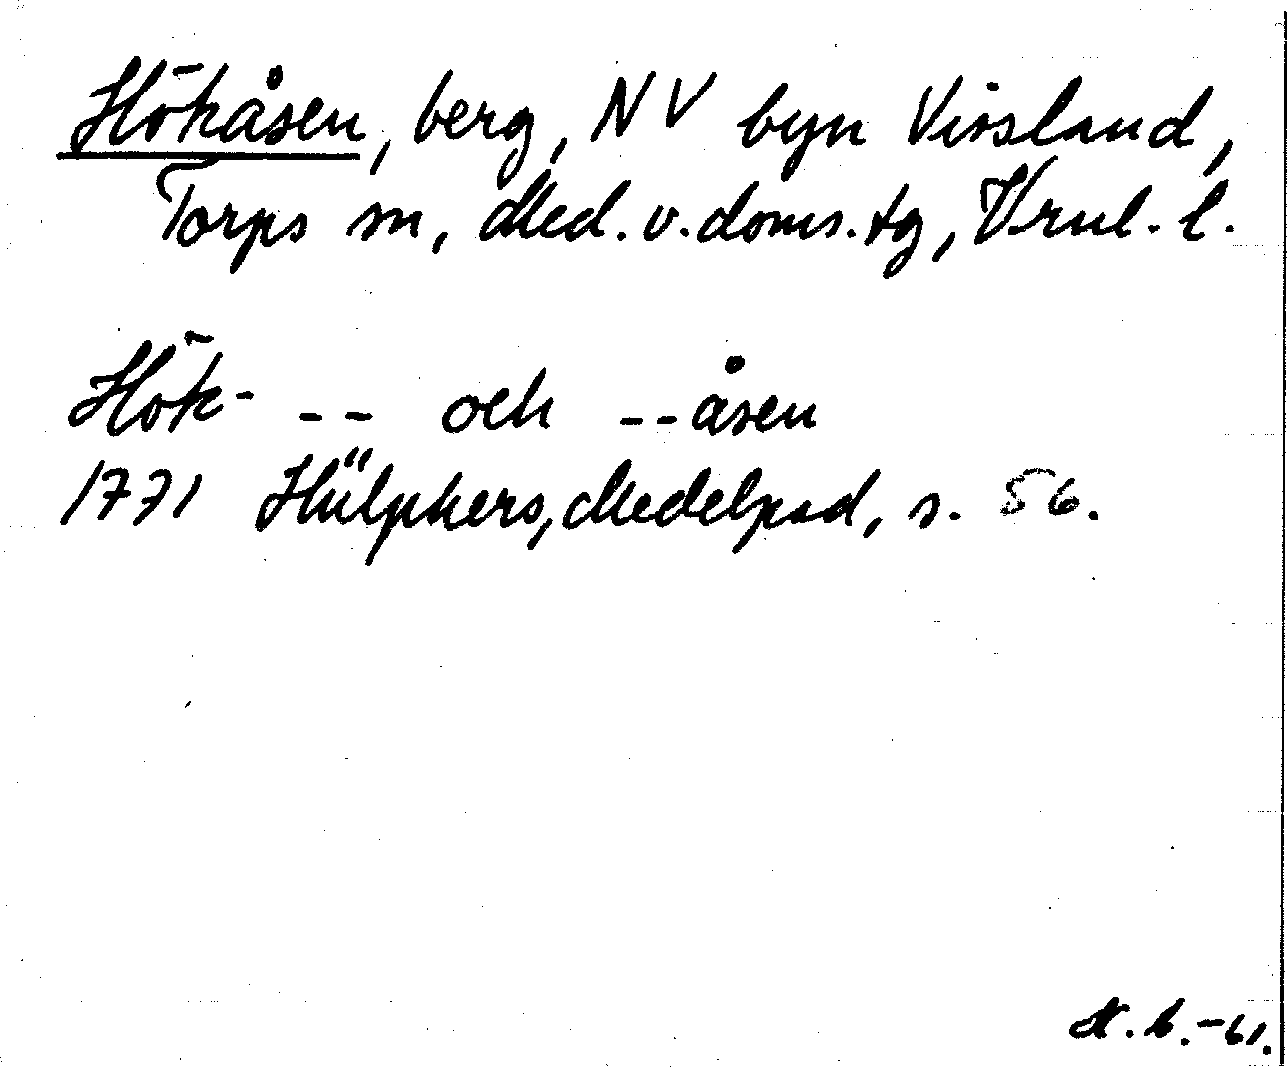 Hökåsen, berg, NV byn Vissland,
Torps sn, Med. v. doms. tg, Vrnl. l.
Hök- -- och --åsen
1771 Hülphers, Medelpad, s. 56.
-61.